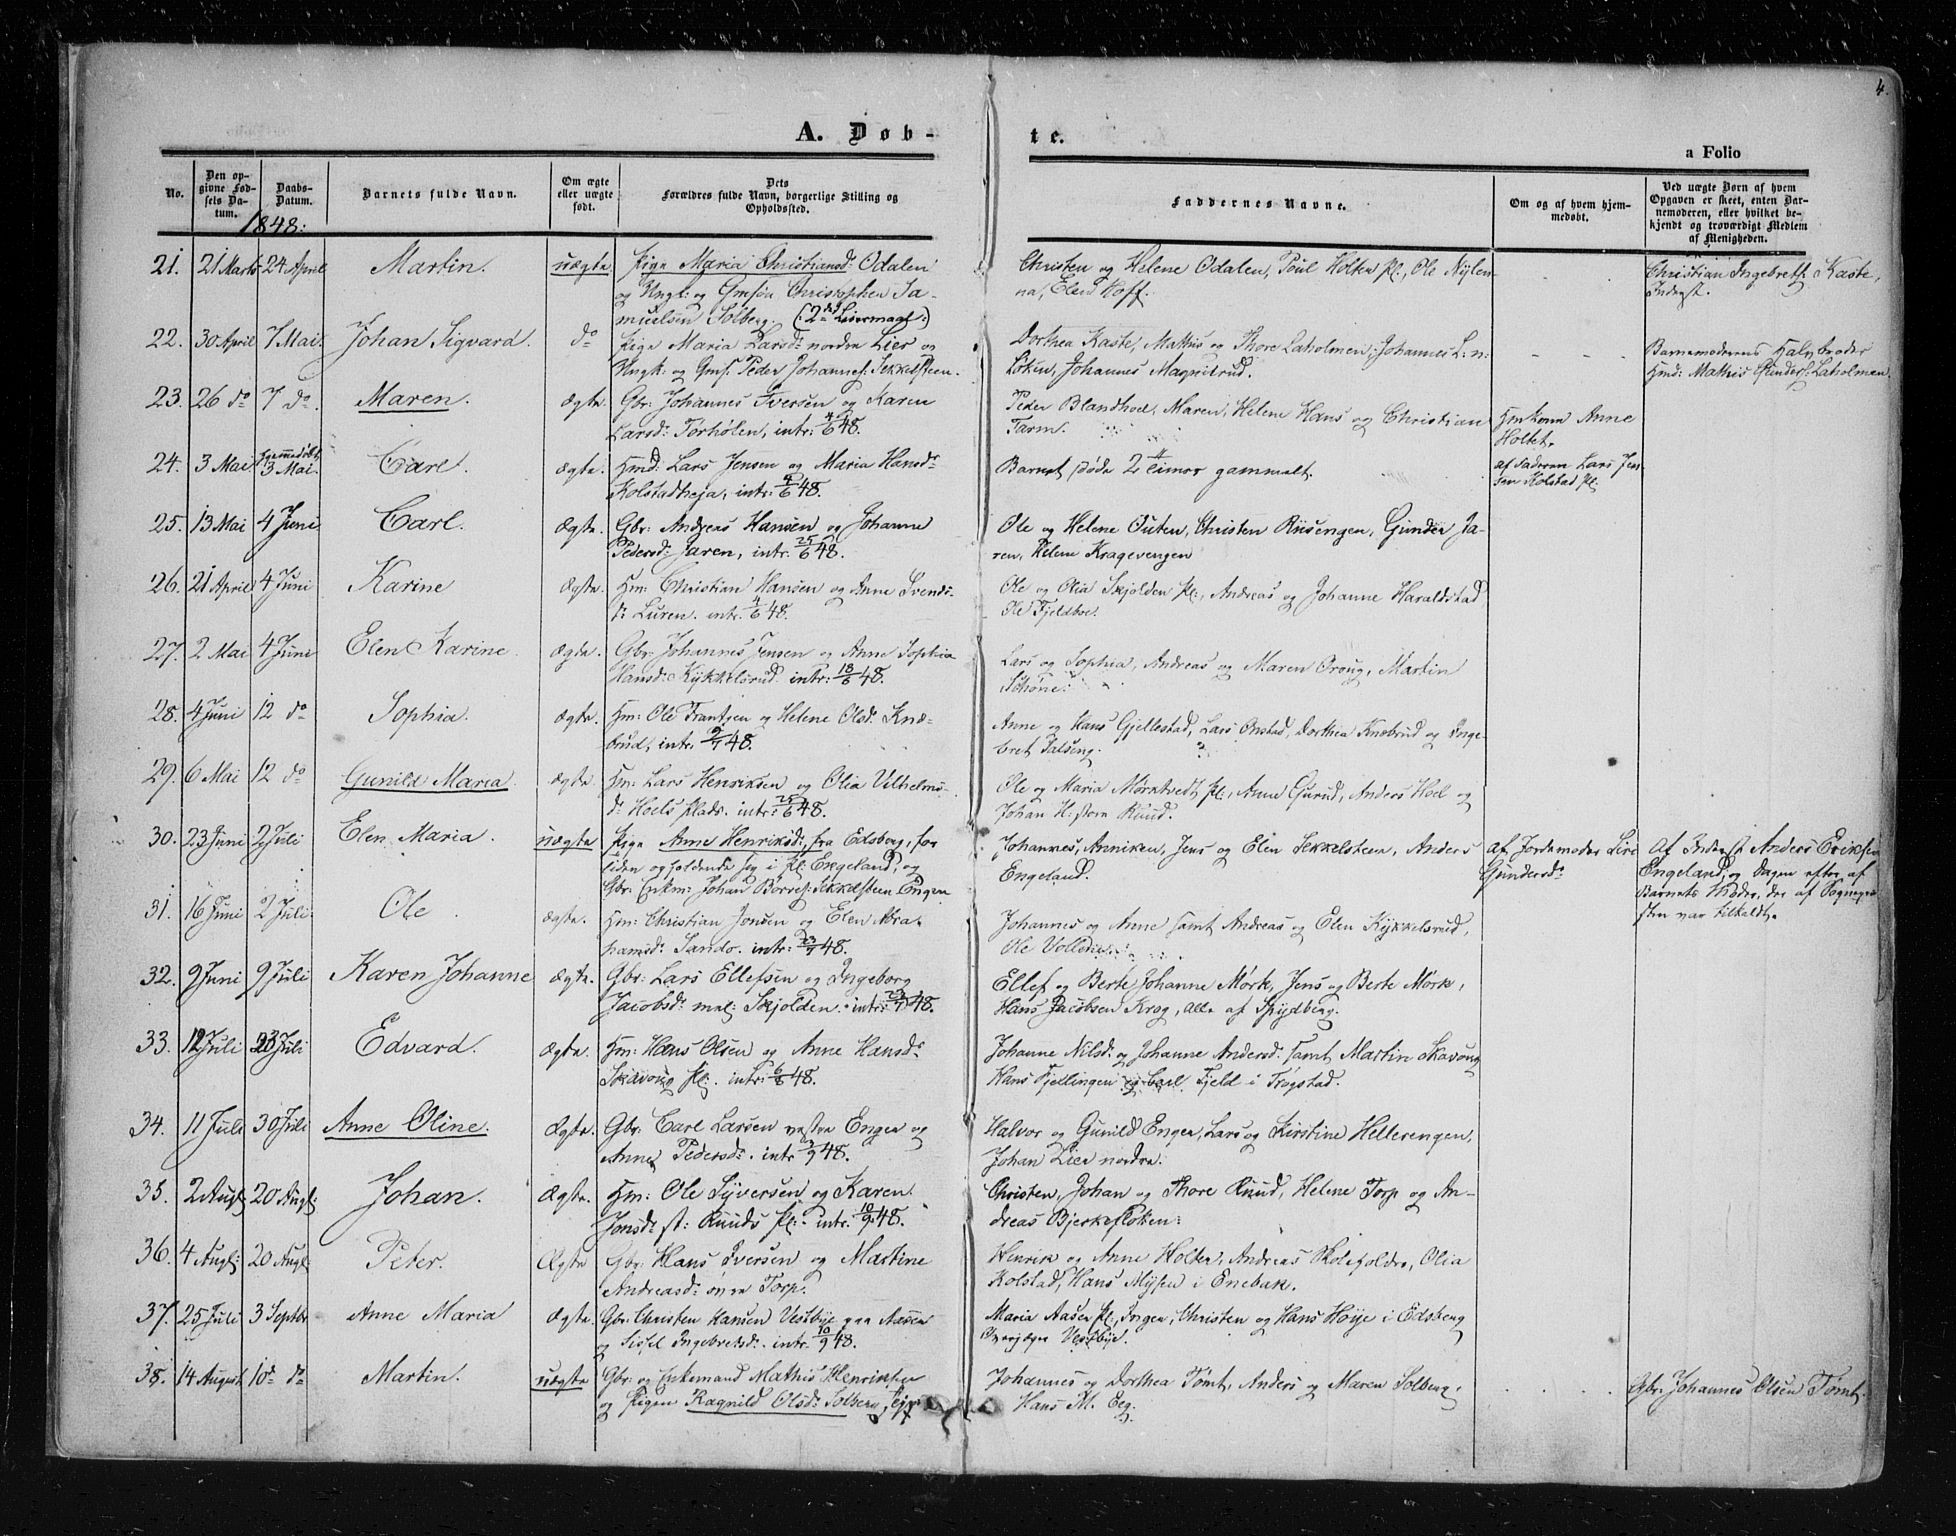 4.
A. Døb-
te.
a Folio
No.
Den op-
givne Fød-
sels Da-
tum.
Daabs-
Datum.
Barnets fulde Navn.
Om ægte
eller uægte
født.
Dets
Forældres fulde Navn, borgerlige Stilling og
Opholdssted.
Faddernes Navne.
Om og af hvem hjem-
medøbt.
Ved uægte Børn af hvem
Opgaven er skeet, enten Bar-
nemoderen, eller hvilket be-
kjendt og troværdigt Medlem
af Menigheden.
1848:
21. 21 Marts 24 April Martin. uægte Pige Maria Christiansd: Odalen
og Ungk: og Gmsøn Christopher Sa-
muelsen Solberg. (:2det Leiermaal:)
Christen og Helene Odalen, Poul Holten pl., Ole Nylen-
na, Hoff.
Christian Ingebretz. Kaste,
Inderst.
22. 30 April 7 Mai. Johan Sigvard. do Pige Maria Larsd: nordre Lier og
Ungk: og Gms. Peder Johannes: Sekkelsteen.
Dorthea Kaste, Mathis og Thore Laholmen, Johannes L: n:
Løken, Johannes Magnitrud.
Barnemoderens Halvbroder
Hmd: Mathis Gunders: Laholmen.
23. 26 do 7 do. Maren. Ægte. Gbr: Johannes Iversen og Karen
Larsd: Torhølen, intr: 4/6 48.
Peder Blandhoel, Maren, Helene Hans og Christian
Tarm.
Hmkone Anne
Holtet.
24. 3 Mai Hjemmedøbt
3 Mai Carl. ægte. Hmd: Lars Jensen og Maria Hansdr
Kolstadheja, intr: 4/6 48.
Barnet døde 2 Timer gammelt.
af Faderen Lars Jen-
sen Kolstad pl.
25. 13 Mai 4 Juni Carl. Ægte. Gbr: Andreas Hansen og Johanne
Pedersd: Jaren, intr. 25/6 48.
Ole og Helene Outen, Christen Riisengen, Gunder Ja-
ren, Helene Kragevengen
26. 21 April 4 Juni Karine Ægte. Hm: Christian Hansen og Anne Svends-
d: Luren. intr. 4/6 48.
Ole og Olia Skjolden pl:, Andreas og Johanne Haraldstad
Ole Fjeldboe.
27. 2 Mai 4 Juni Elen Karine. ægte. Gbr: Johannes Jensen og Anne Sophia
Hansd: Kykkelsrud. intr: 18/6 48.
Lars og Sophia, Andreas og Maren Oroug, Martin
Schøne.
28. 4 Juni 12 do Sophia. ægte. Hm: Ole Frantzen og Helene Olsd. Knæ-
brud, intr. 9/7 48.
Anne og Hans Gjellestad, Lars Onstad, Dorthea Knebrud og Inge-
bret
29. 6 Mai 12 do Gunild Maria. ægte Hm: Lars Henriksen og Olia Vilhelms-
d: Hoels plads. intr: 25/6 48.
Ole og Maria Mørktvedt pl:, Anne Gurud, Anders Hoel og
Johan H: store Ruud.
30. 23 Juni 2 Juli Elen Maria. uægte Pige Anne Henriksd:, fra Edsberg, for
tiden opholdende sig i pl: Engeland, og
Gbr: Enkm: Johan Børres: Sekkelsteen Engen
Johannes, Anniken, Jens og Elen Sekkelsteen, Anders
Engeland.
af Jordemoder Lise
Gundersdr
Af Inderst Anders Eriksen
Engeland, og Dagen efter af
Barnets Moder, der af Sognepre
sten var tilkaldt.
31. 16 Juni 2 Juli. Ole. ægte. Hm: Christian Jonsen og Elen Abra-
hamsd: Sando. intr: 23/7 48.
Johannes og Anne samt Andreas og Elen Kykkelsrud,
Ole Vollene
32. 9 Juni 9 Juli Karen Johanne ægte. Gbr: Lars Ellefsen og Ingeborg
Jacobsd: mel: Skjolden. intr: 23/7 48.
Ellef og Berte Johanne Mørk, Jens og Berte Mørk,
Hans Jacobsen Krog, alle af Spydberg.
33. 12 Juli 23 Juli Edvard. Ægte. Hm: Hans Olsen og Anne Hansdr
Skavoug pl:. intr: 6/8 48.
Johanne Nilsd: og Johanne Andersd: samt Martin Skavoug
Hans Fjellingen og Carl Fjeld i Trøgstad.
34. 11 Juli 30 Juli Anne Oline. Ægte. Gbr: Carl Larsen vestre Enger og
Anne Pedersdr. intr 3/9 48.
Halvor og Gunild Enger, Lars og Kirstine Hellerengen,
Johan Lier nordre.
35. 2 Augs 20 Augs: Johan. Ægte. Hm: Ole Syversen og Karen
Jonsdr st: Ruuds pl:. intr. 10/9 48.
Christen, Johan og Thore Ruud, Helene Torp og An-
dreas Bjerkefloken:
36. 4 Augs: 20 Augs. Peter. Ægte Gbr: Hans Iversen og Martine
Andreasd: øvre Torp.
Henrik og Anne Holter, Andreas Skolefoldre, Olia
Kolstad, Hans Mysen i Enebak.
37. 25 Juli 3 Septbr Anne Maria Ægte. Gbr: Christen Hansen Vestbye paa Aasen
og Sissel Ingebretsdr. intr. 10/9 48.
Maria Aaser pl:, Jørgen, Christen og Hans Høje i Edsberg
Vestbye.
38. 14 August. 10de do Martin. uægte Gbr: og Enkemand Mathis Henriksen
og Pigen Ragnild Olsd: Solberg
Johannes og Dorthea Tømt, Anders og Maren Solberg,
Hans M. Eeg.
Gbr: Johannes Olsen Tømt.